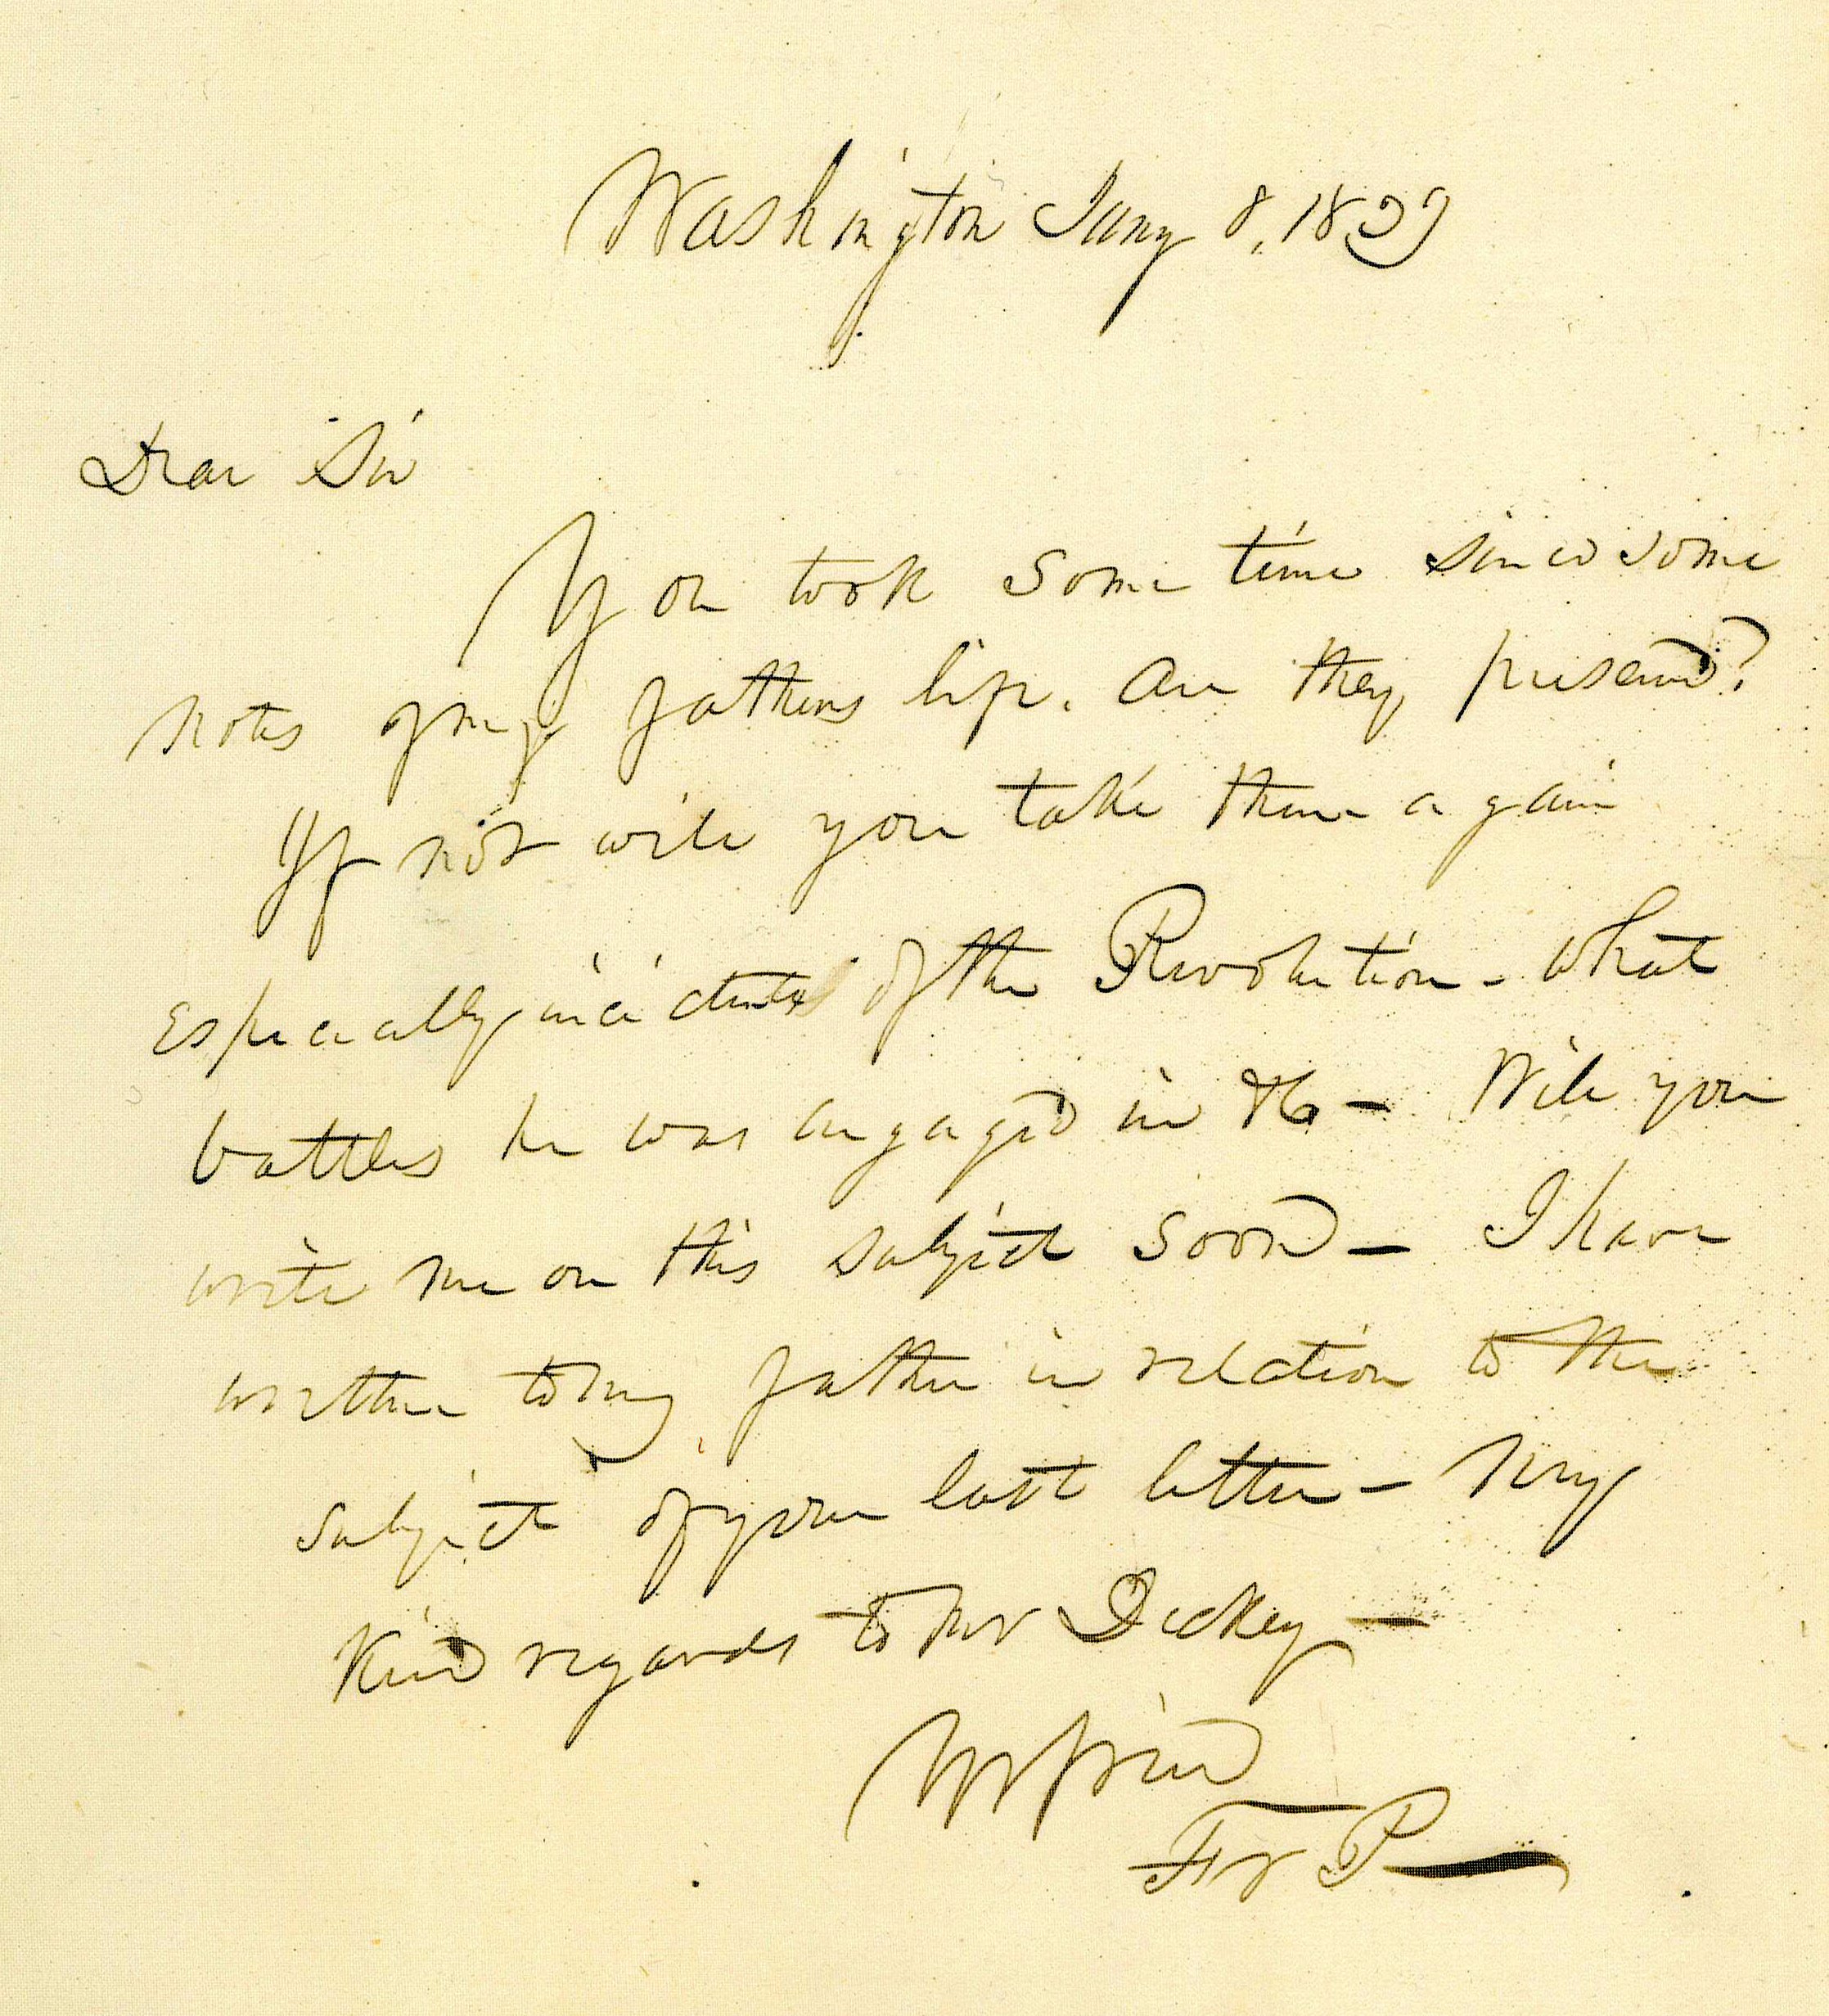 Washington Jany 8, 1839
Dear Sir
You took some time since some
notes of my fathers life. Are they preserved?
If not will you take them again
especially incidents of the Revolution - what
battles he was engaged in &c — Will you
write me on this subject soon — I have
written to my father in relation to the
subject of your last letter — My
Kind regards to Mr Dickey —
Yr friend
Fr P